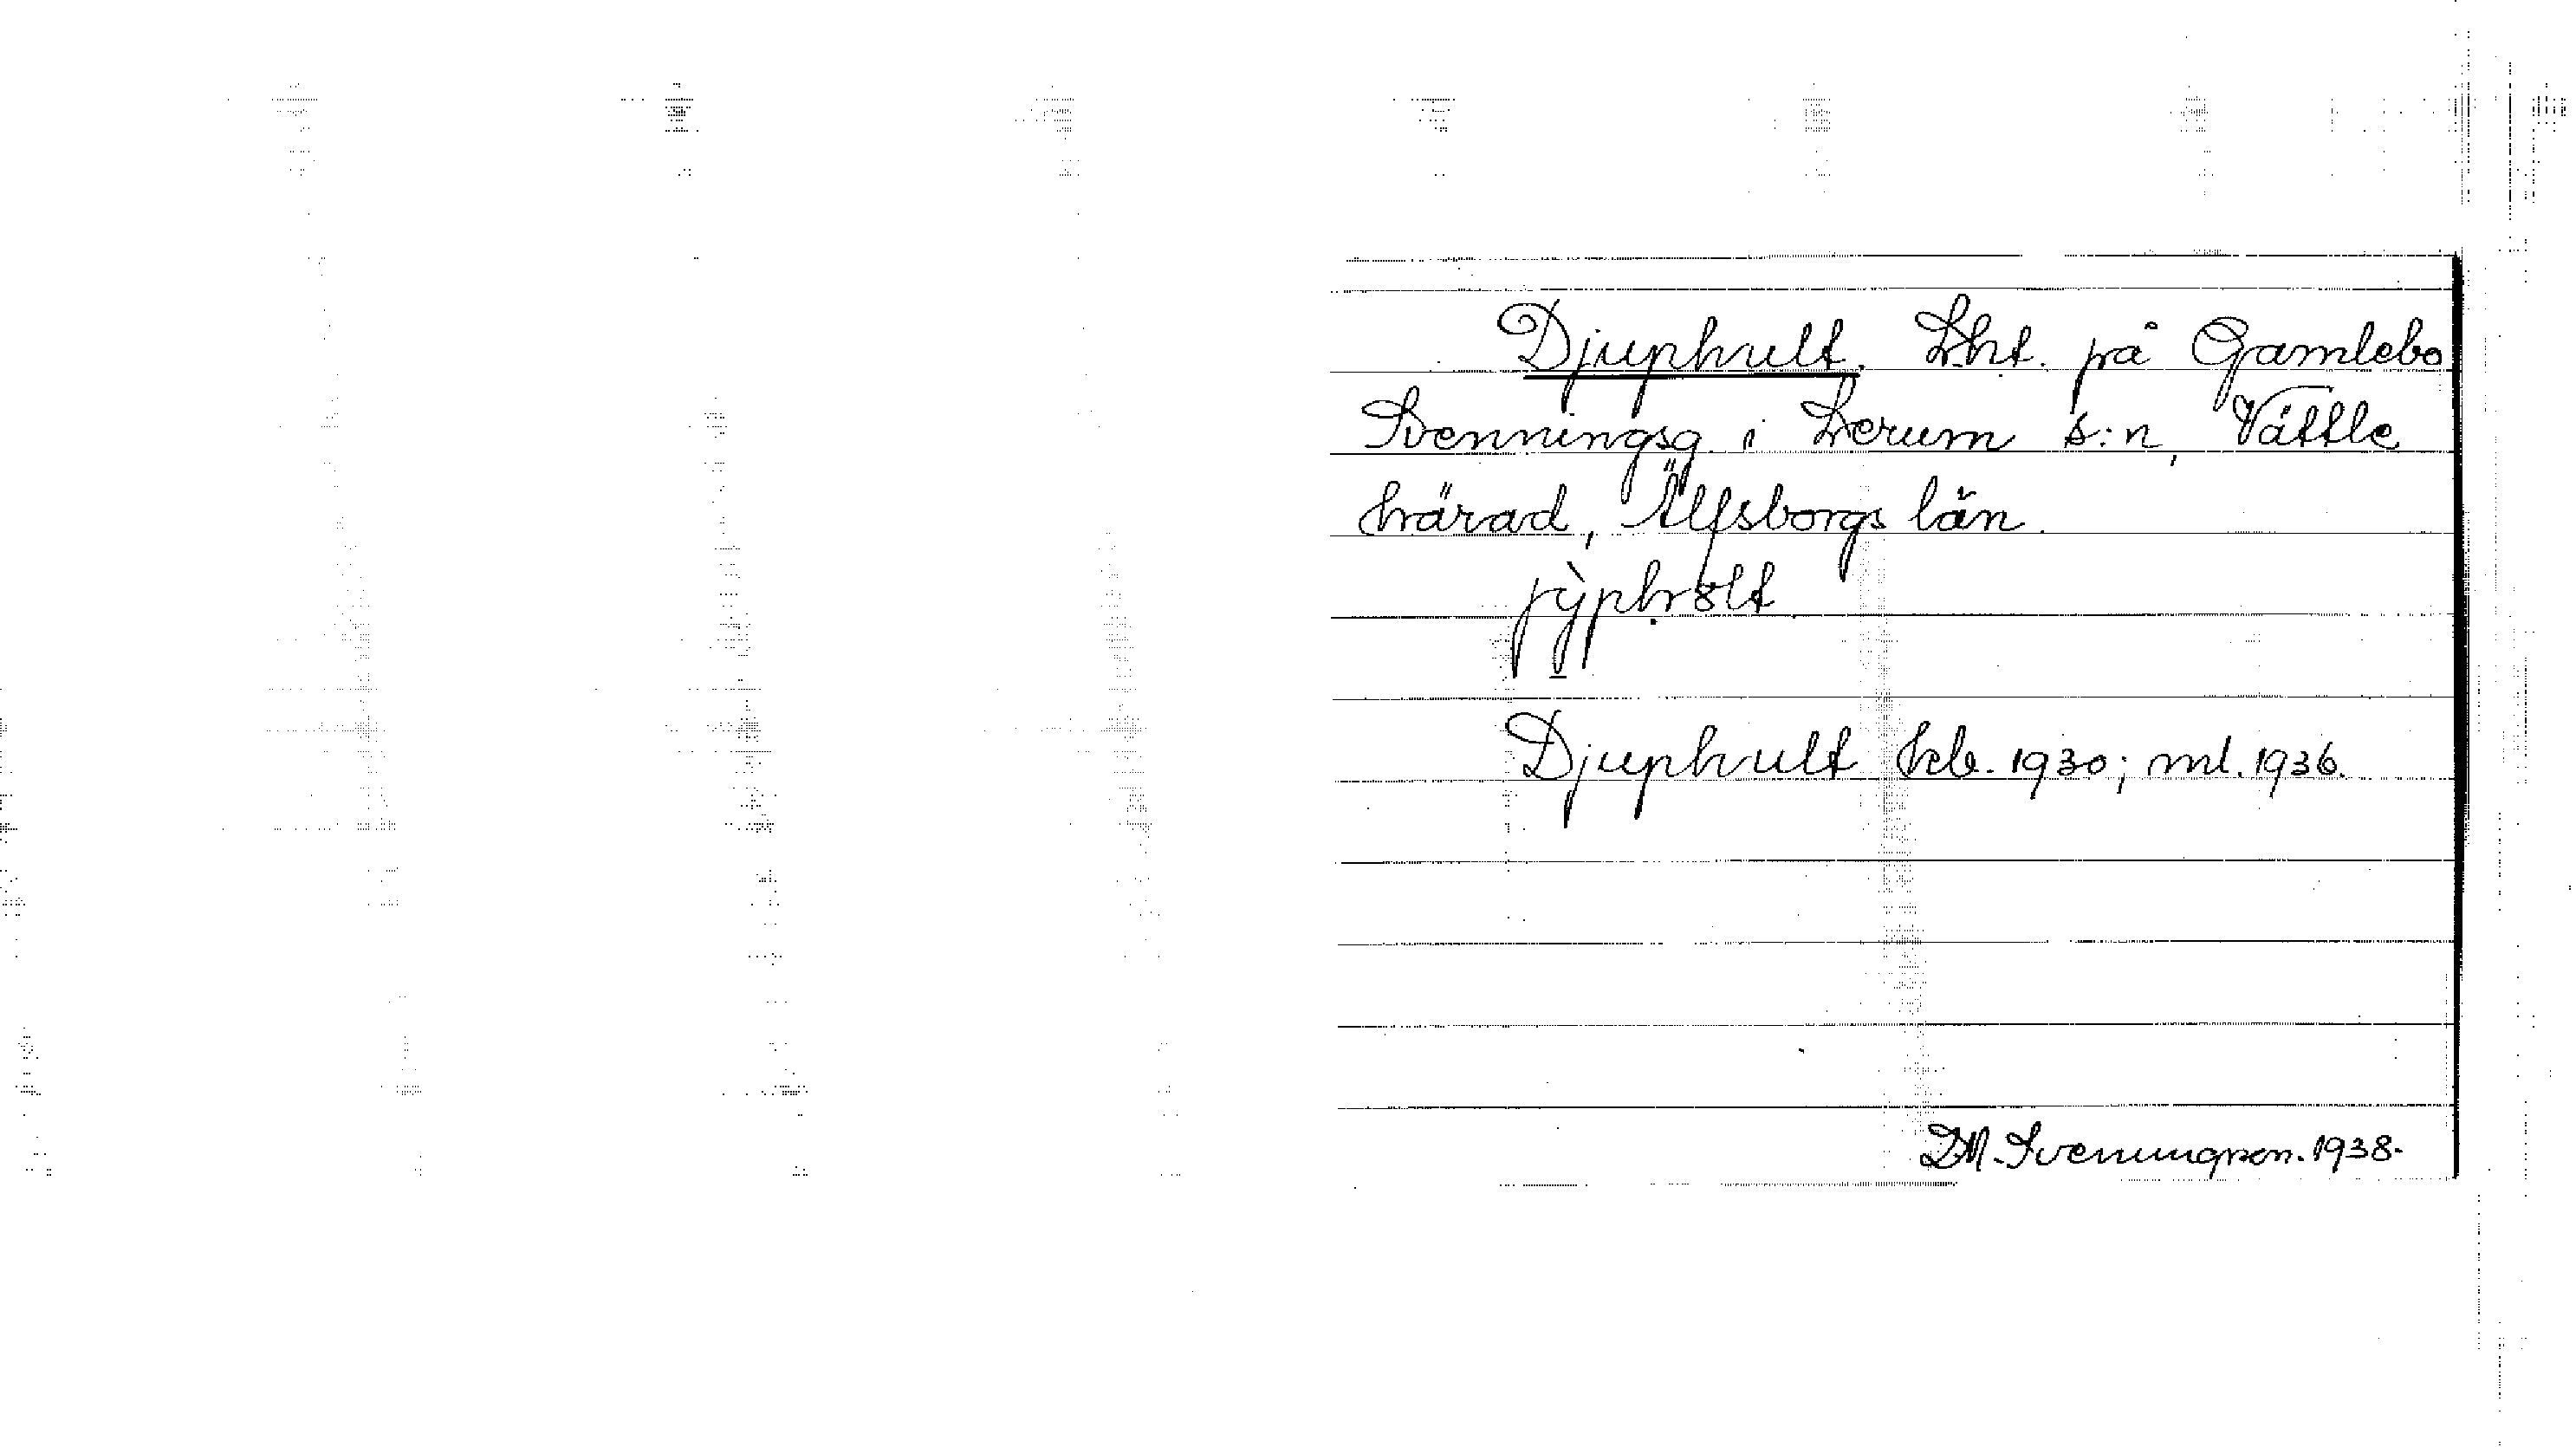 Djuphult. Lht. på Gamlebo
Svenningsg. i Lerum s:n, Vättle
härad, Älfsborgs län.
jỳpḥ8lt
Djuphult hkb. 1930; ml. 1936.
D.M. Svenningson. 1938.